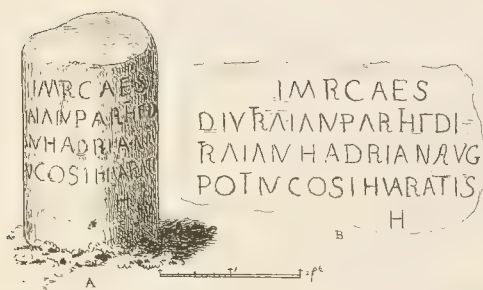 IMRCAES
IAIANPARHFDI
NHADRIANA
VCOSIHVARATI
H
A
IMRCAES
DIVTRAIANPARHΓDI-
RAIANHADRIANAVG
POTIVCOSIHVARATIS
H
B